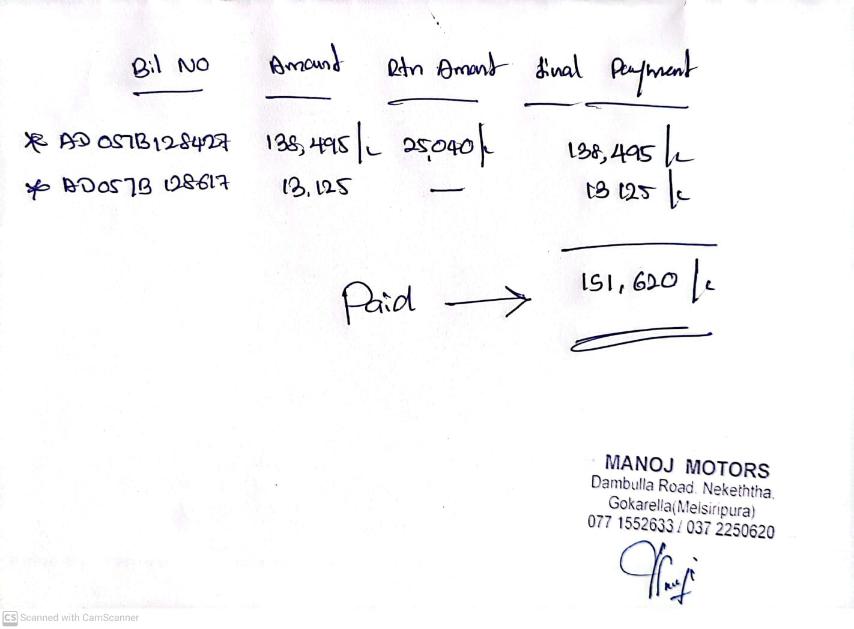 Bil NO Amount Rtn Amont Final Payment
* AD057B128427 138,495/- 25,040/- 138,495/-
* AD057B 128617 13,125 — 13 125/-
151,620/-
Paid →
MANOJ MOTORS
Dambulla Road. Nekeththa,
Gokarella(Melsiripura)
077 1552633 / 037 2250620
CS Scanned with CamScanner